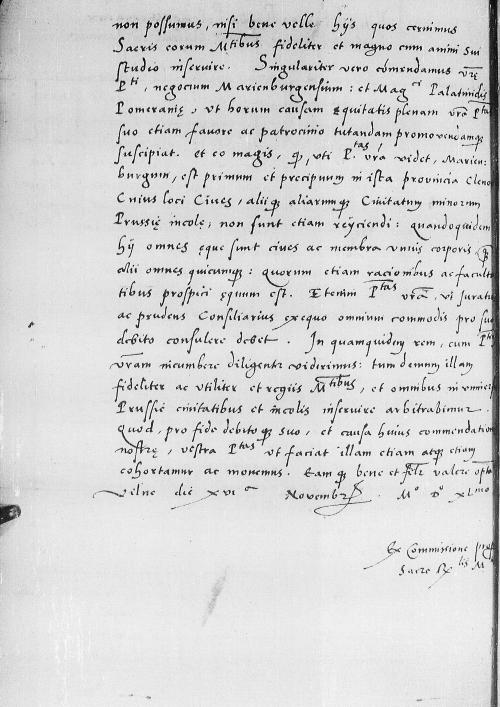 non possumus, nisi bene velle hijs quos cernimus
Sacris eorum Mtibus fideliter et magno cum animi sui
studio inservire. Singulariter vero comendamus vrę
Pti, negocium Marienburgensium: et Magci Palatinidis
Pomeranię, ut horum causam equitatis plenam vrā Ptas
suo etiam favore ac patrocinio tutandam promovendamque
suscipiat. et eo magis, quod, uti Ptas vrā videt, Marien:
burgum, est primum et precipuum in ista provincia
Cuius loci Cives, aliique aliarumque Civitatum minorum
Prussię incolę, non sunt etiam reijciendi: quandoquidem
hij omnes ęque sunt cives ac membra unius corporis
alii omnes quicunque: quorum etiam racionibus ac facult
tibus prospici ęquum est. Etenim Ptas vrā, ut Iuratus
ac prudens Consiliarius ex ęquo omnium commodis pro suo
debito consulere debet. In quamquidem rem, cum Ptas
vrām incumbere diligenter viderimus: tum demum illam
fideliter ac utiliter et regiis Mtibus, et omnibus in
Prussię civitatibus et incolis inservire arbitrabimur.
Quod, pro fide debitoque suo, et causa huius commendation
nostrę, vestra Ptas ut faciat illam etiam atque etiam
cohortamur ac monemus. Eamque bene et felr valere opta
Vilne die xvi Novembr. Mo Do xLmo
Ex Commissione
Sacre Rtis M